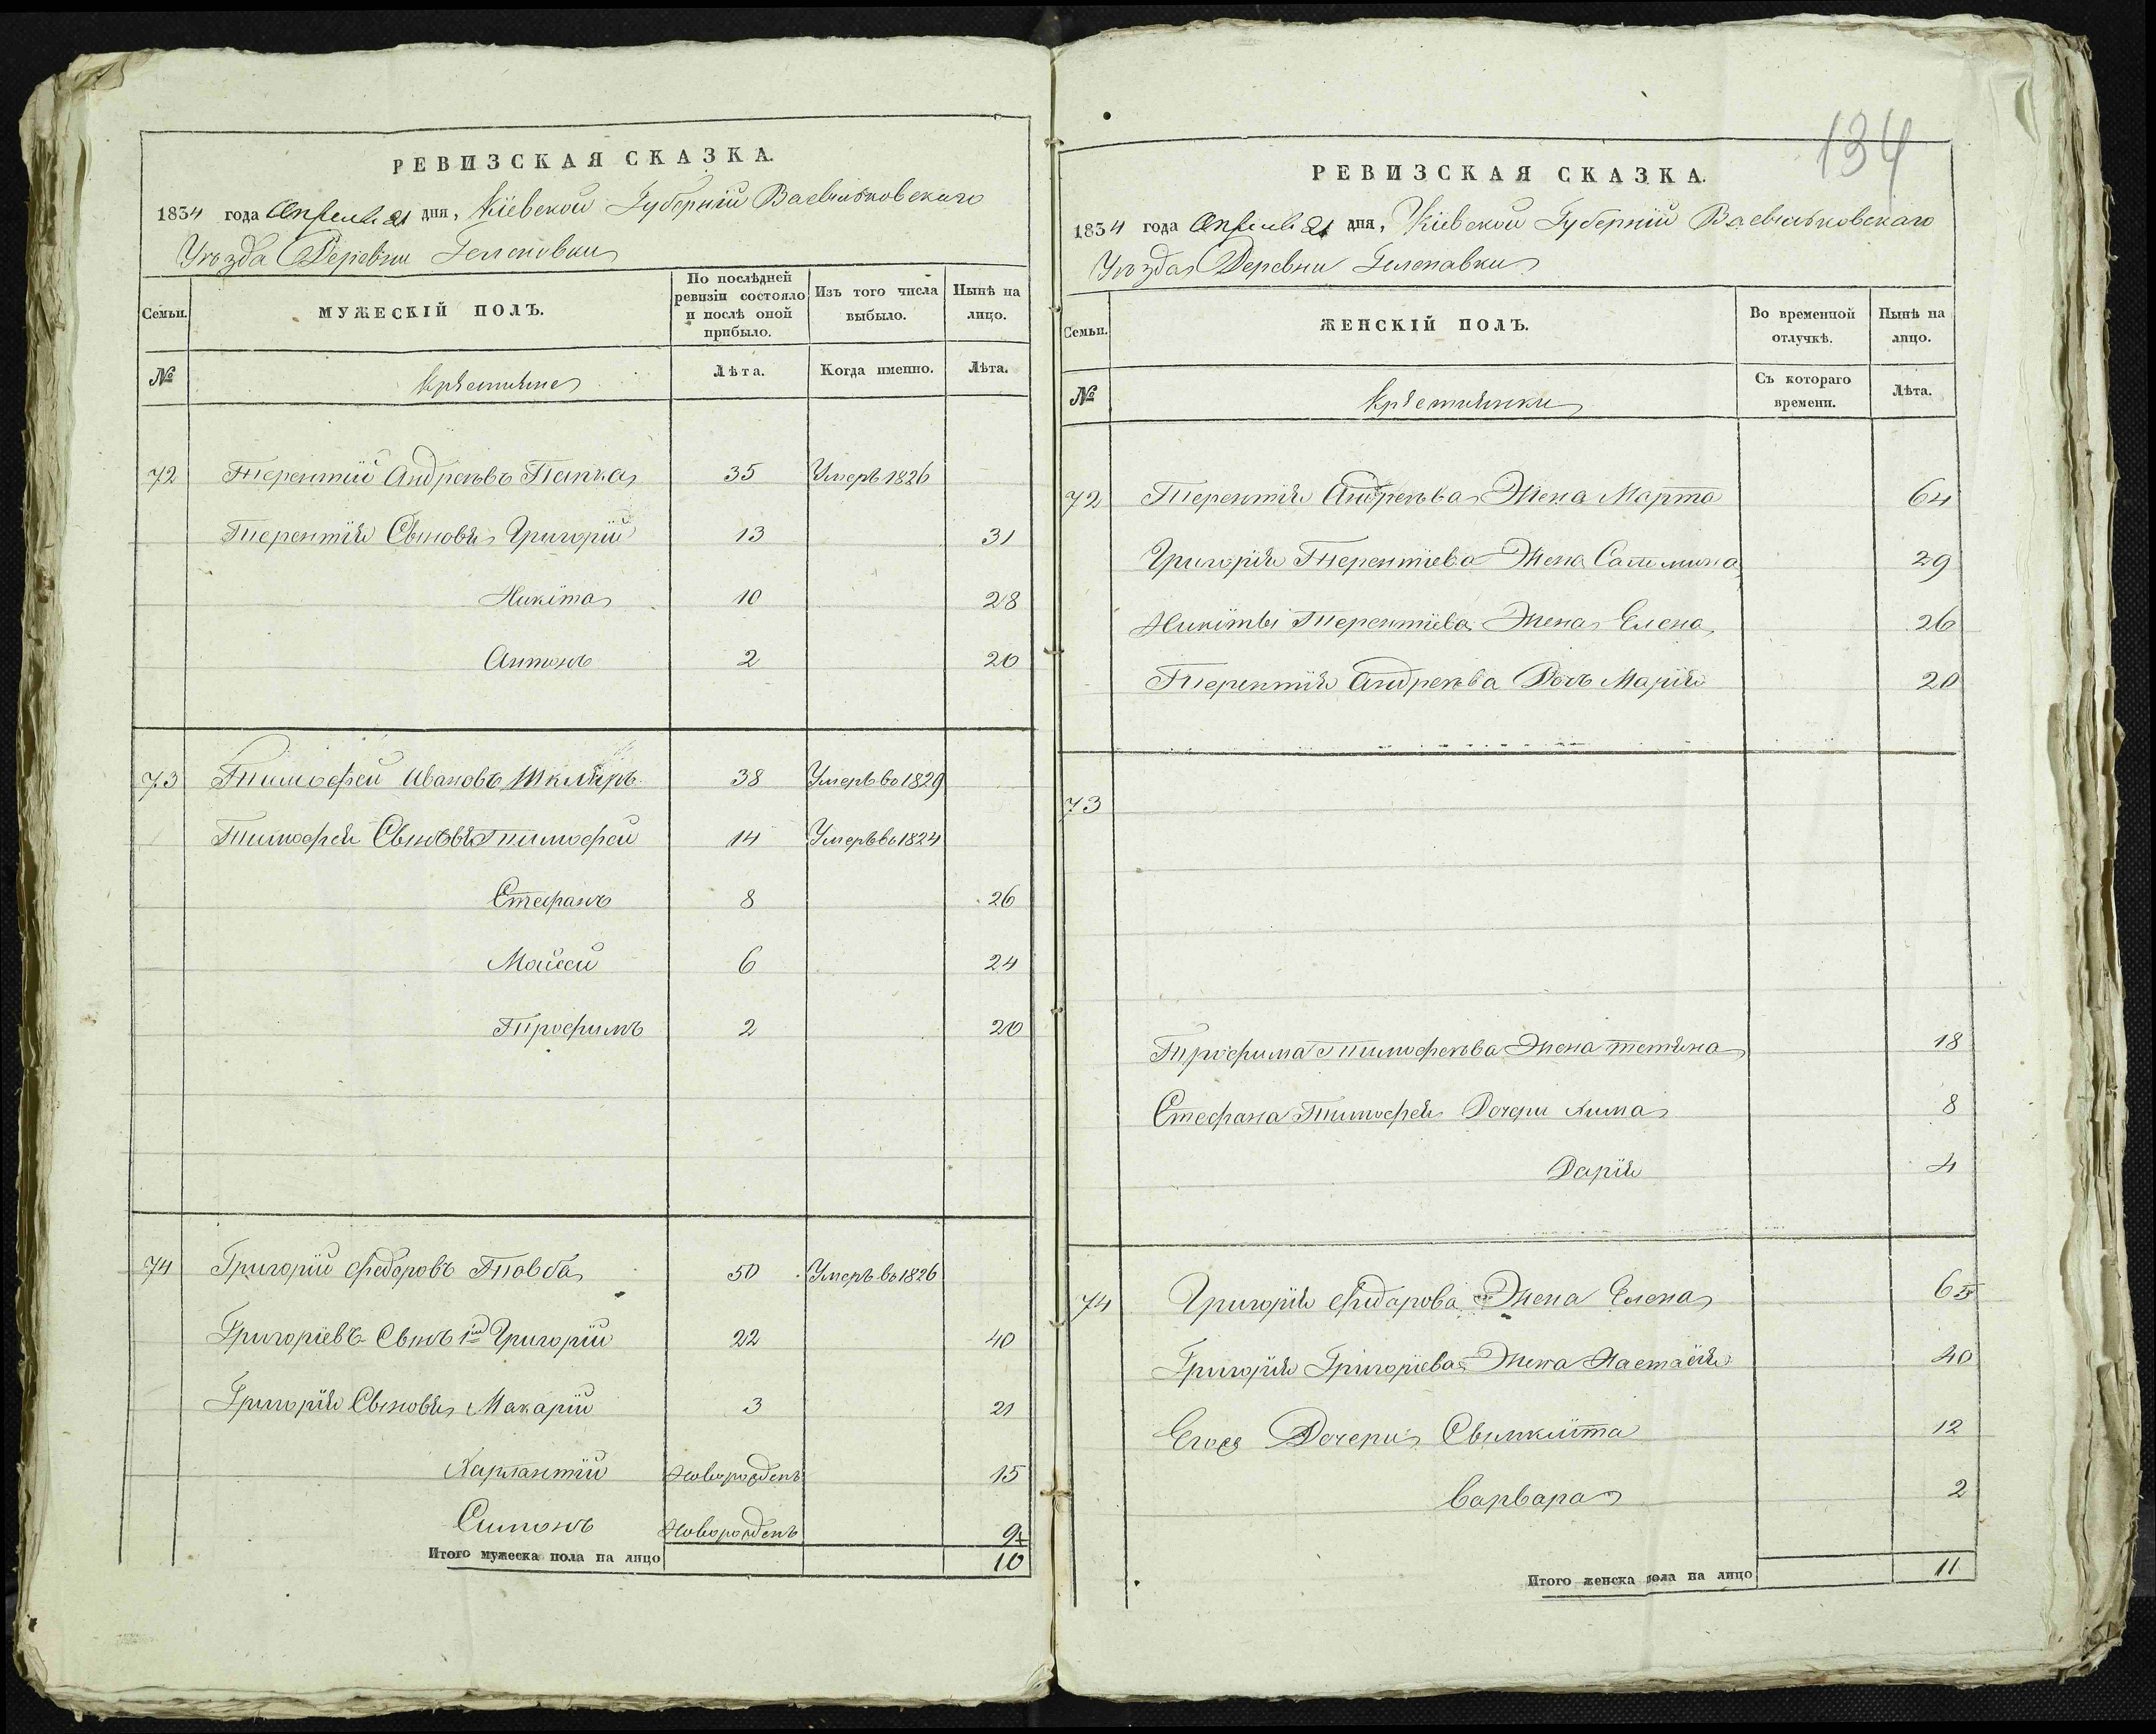 РЕВИЗСКАЯ СКАЗКА.
1834 года Апреля 21 дня, Кіевской Губерніи Васильковскаго
Уѣзда Деревни
Семьи.
МУЖЕСКІЙ ПОЛЪ.
По послѣдней ревизіи состояло и послѣ оной прибыло.
Изъ того числа выбыло.
Нынѣ на лицо.
№
Крѣстьяне
Лѣта.
Когда именно.
Лѣта.
72 Терентій Андреѣвъ 35 Умеръ 1826
Терентія Сыновья Григорій 13 31
Никіта 10 28
Антонъ 2 20
73 Тимофей Ивановъ Шкляръ 38 Умеръ во 1829
Тимофея Сыновья Тимофей 14 Умеръ во 1824
Стефанъ 8 26
Моисей 6 24
Трофимъ 2 20
74 Григорій Федоровъ Товба 50 Умеръ во 1826
Григоріевъ Сынъ 1й Григорій 22 40
Григорія Сыновья Макарій 3 21
Новорожденъ 15
Симонъ Новорожденъ 9
Итого мужеска пола на лицо 10
134
РЕВИЗСКАЯ СКАЗКА.
1834 года Апреля 21 дня, Кіевской Губерніи Васильковскаго
Уѣзда Деревни
Семьи.
ЖЕНСКІЙ ПОЛЪ.
Во временной отлучкѣ.
Нынѣ на лицо.
№
Крѣстьянки
Съ котораго времени.
Лѣта.
72 Терентія Андреѣва Жена Марта 64
Григорія Терентіева Жена 29
Никіты Терентіева Жена Елена 26
Терентія Андреѣва Дочь Марія 20
73
Трофима Тимофеѣва Жена Тетяна 18
Стефана Тимофея Дочери Хима 8
Дарія 4
74 Григорія Фидарова Жена Елена 65
Григорія Григоріева Жена Настасія 40
Егоже Дочери 12
Варвара 2
Итого женска пола на лицо 11